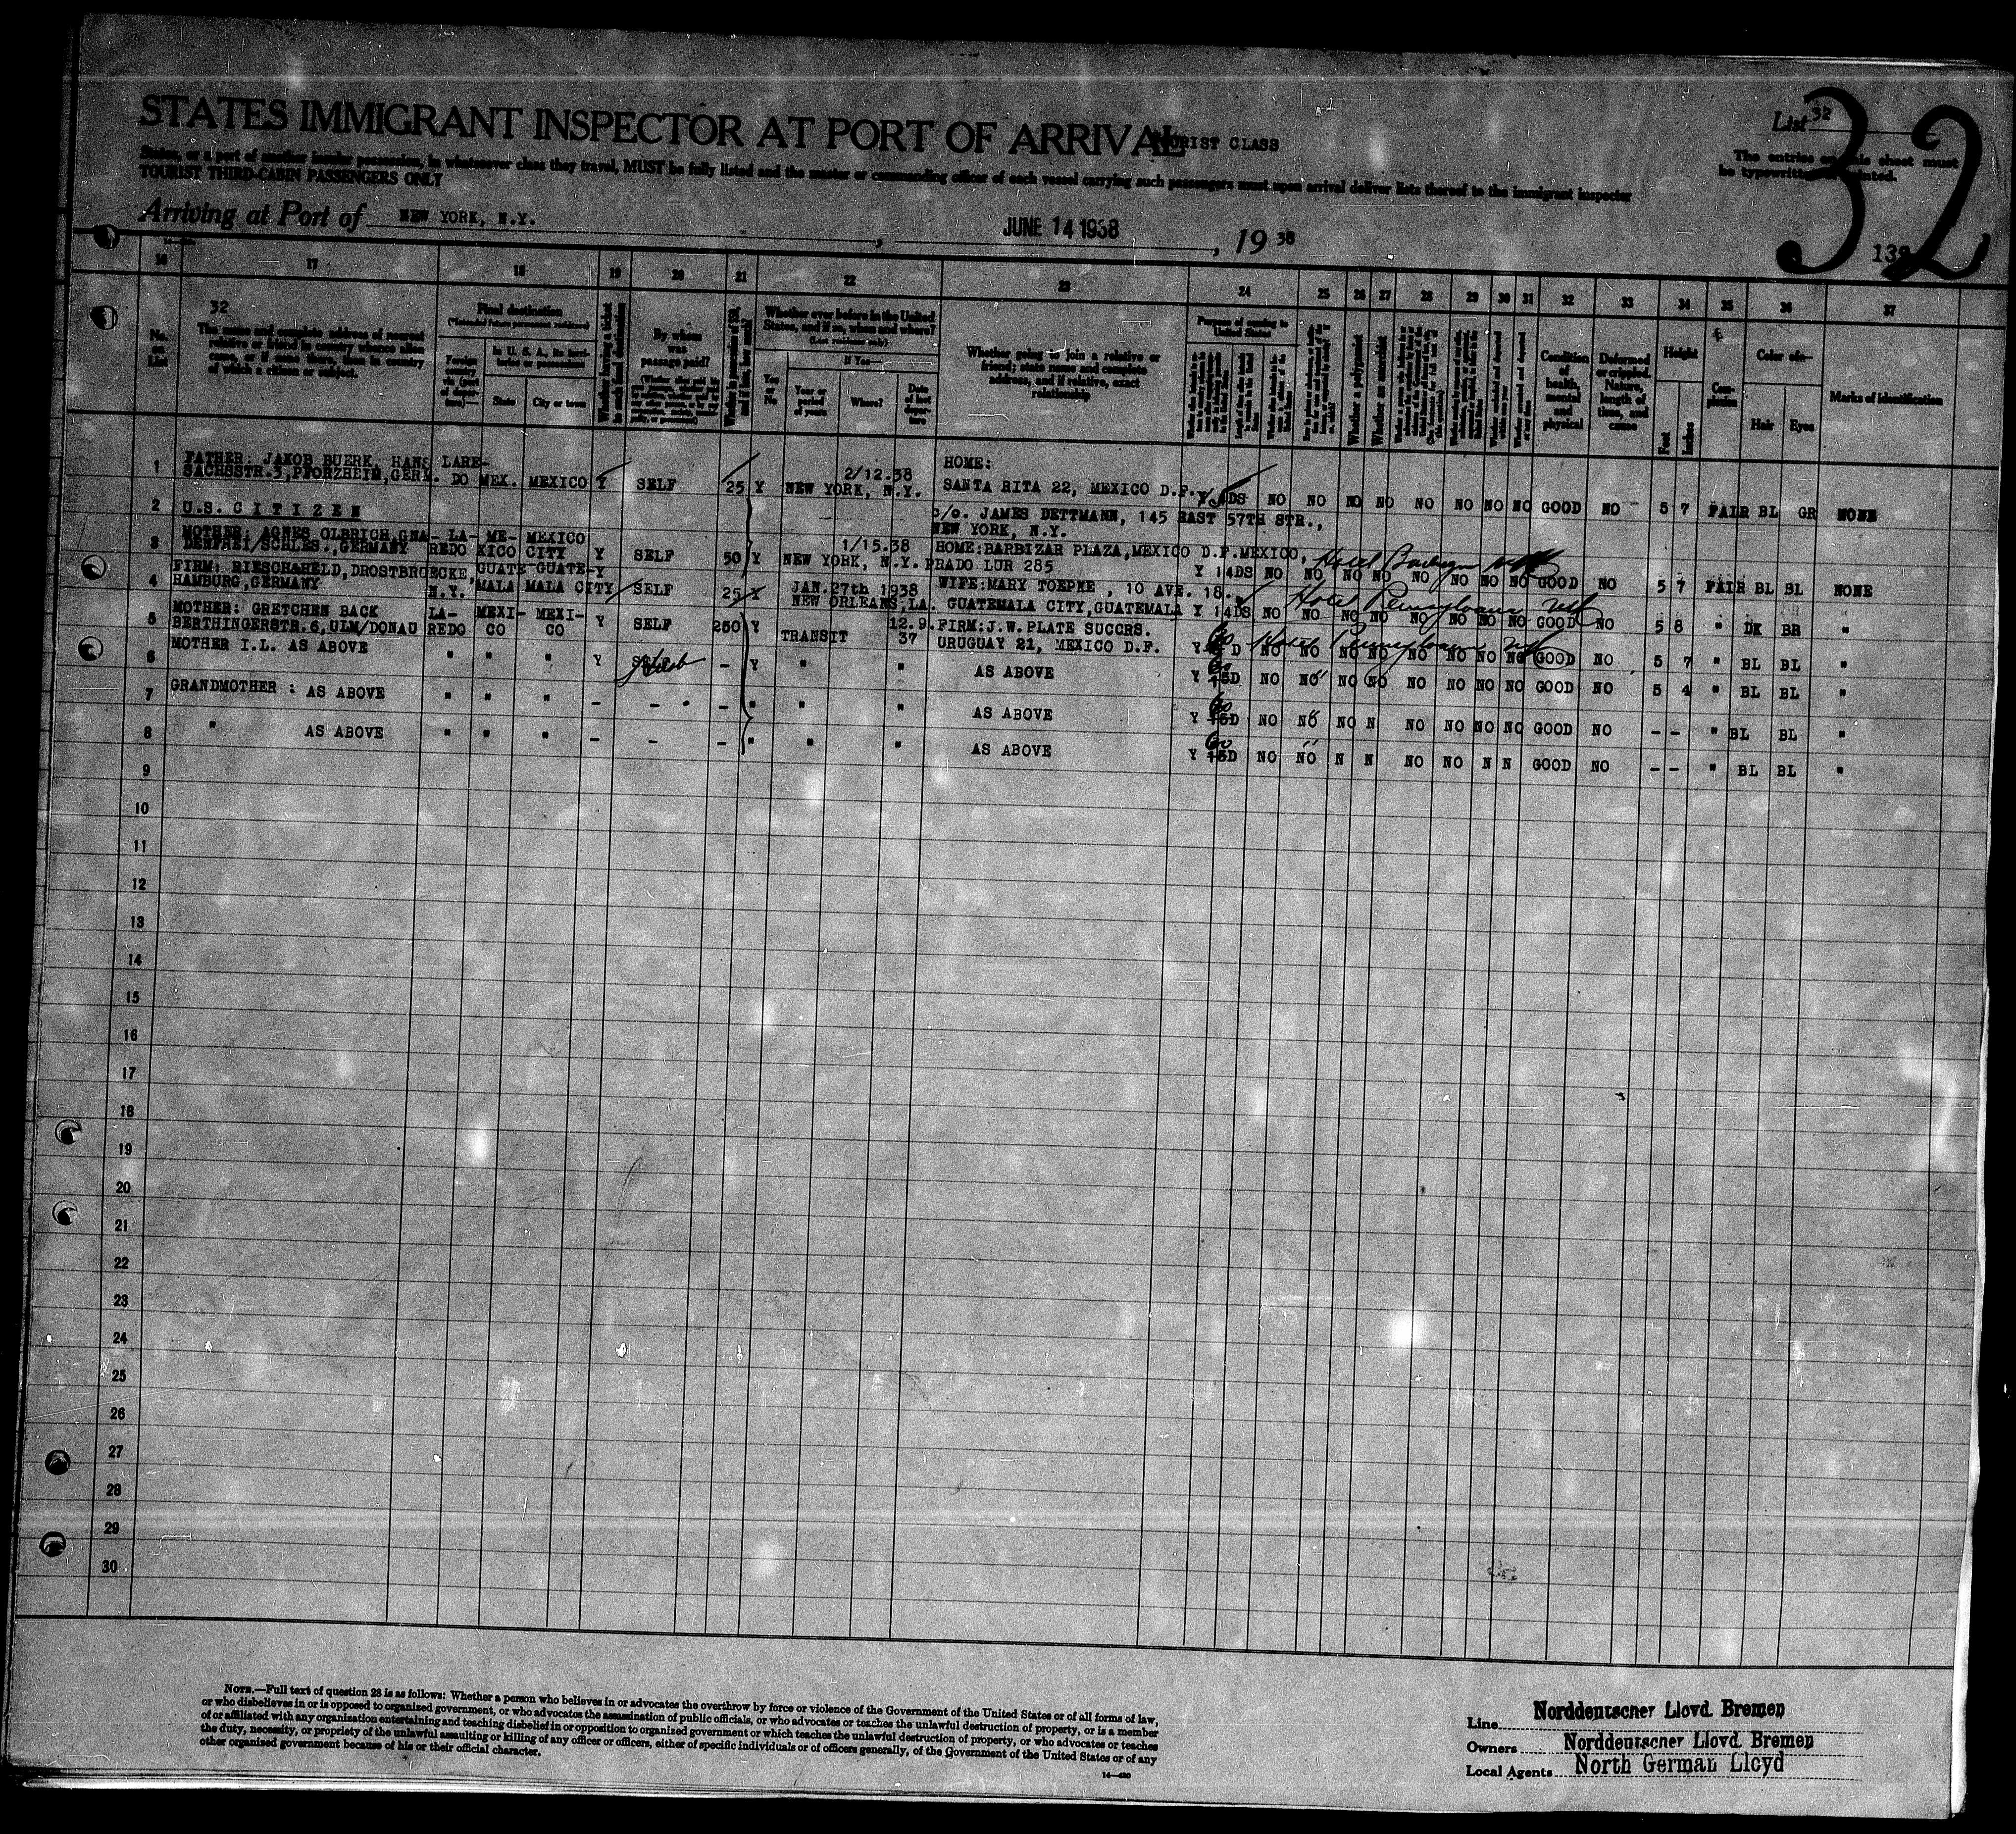 STATES IMMIGRANT INSPECTOR AT PORT OF ARRIVAL
TOURIST CLASS
List 32
32
The entries on this sheet must
be typewritten or printed.
States, or a port of another insular possession, in whatsoever class they travel, MUST be fully listed and the master or commanding officer of each vessel carrying such passengers must upon arrival deliver lists thereof to the immigrant inspector
TOURIST THIRD-CABIN PASSENGERS ONLY
Arriving at Port of NEW YORK, N.Y. , JUNE 14 1938 , 19 38
16 17 18 19 20 21 22 23 24 25 26 27 28 29 30 31 32 33 34 35 36 37
No. on List
32
The name and complete address of nearest relative or friend in country whence alien came, or if none there, then in country of which a citizen or subject.
Final destination
(Intended future permanent residence)
In U. S. A., its territories or possessions
State City or town
By whom was passage paid?
Whether ever before in the United States, and if so, when and where?
If Yes—
Yes or No Year or period of years Where? Date of last departure
Whether going to join a relative or friend; state name and complete address, and if relative, exact relationship
Purpose of coming to United States
Whether a polygamist
Whether an anarchist
Condition of health, mental and physical
Deformed or crippled. Nature, length of time, and cause
Height
Feet Inches
Complexion
Color of—
Hair Eyes
Marks of identification
1 FATHER: JAKOB BUERK, HANS LARE- 2/12.38 HOME:
SACHSSTR.3,PFORZHEIM,GERM. DO MEX. MEXICO Y SELF 25 Y NEW YORK, N.Y. SANTA RITA 22, MEXICO D.F. Y DS NO NO NO NO NO NO NO NO GOOD NO 5 7 FAIR BL GR NONE
2 U.S. CITIZEN c/o. JAMES DETTMANN, 145 EAST 57TH STR.,
NEW YORK, N.Y.
3 MOTHER: AGNES OLBRICH GNA- LA- ME- MEXICO 1/15.38 HOME:BARBIZAR PLAZA,MEXICO D.F.MEXICO, Hotel
DENFREI/SCHLES.,GERMANY REDO XICO CITY Y SELF 50 Y NEW YORK, N.Y. PRADO LUR 285 Y 14DS NO NO NO NO NO NO NO NO GOOD NO 5 7 FAIR BL BL NONE
4 FIRM: RIESCH&HELD,DROSTBRUECKE, GUATE GUATE-Y JAN.27th 1938 WIFE:MARY TOEPKE , 10 AVE. 18. Hotel Pennsylvania
HAMBURG,GERMANY N.Y. MALA MALA CITY SELF 25 Y NEW ORLEANS,LA. GUATEMALA CITY,GUATEMALA Y 14DS NO NO NO NO NO NO NO NO GOOD NO 5 8 " DK BR "
5 MOTHER: GRETCHEN BACK LA- MEXI- MEXI- 12.9. FIRM:J.W. PLATE SUCCRS. Hotel Pennsylvania
BERTHINGERSTR.6,ULM/DONAU REDO CO CO Y SELF 250 Y TRANSIT 37 URUGUAY 21, MEXICO D.F. Y 60 D NO NO NO NO NO NO NO NO GOOD NO 5 7 " BL BL "
6 MOTHER I.L. AS ABOVE " " " Y SELF - Y " " AS ABOVE Y 60 15D NO NO NO NO NO NO NO NO GOOD NO 5 4 " BL BL "
7 GRANDMOTHER : AS ABOVE " " " - - - " " " AS ABOVE Y 60 15D NO NO NO N NO NO NO NO GOOD NO - - " BL BL "
8 " AS ABOVE " " " - - - " " " AS ABOVE Y 60 15D NO NO N N NO NO N N GOOD NO - - " BL BL "
9
10
11
12
13
14
15
16
17
18
19
20
21
22
23
24
25
26
27
28
29
30
NOTE.—Full text of question 28 is as follows: Whether a person who believes in or advocates the overthrow by force or violence of the Government of the United States or of all forms of law,
or who disbelieves in or is opposed to organized government, or who advocates the assassination of public officials, or who advocates or teaches the unlawful destruction of property, or is a member
of or affiliated with any organization entertaining and teaching disbelief in or opposition to organized government or which teaches the unlawful destruction of property, or who advocates or teaches
the duty, necessity, or propriety of the unlawful assaulting or killing of any officer or officers, either of specific individuals or of officers generally, of the Government of the United States or of any
other organized government because of his or their official character.
14—430
Line Norddeutscher Lloyd Bremen
Owners Norddeutscher Lloyd Bremen
Local Agents North German Lloyd